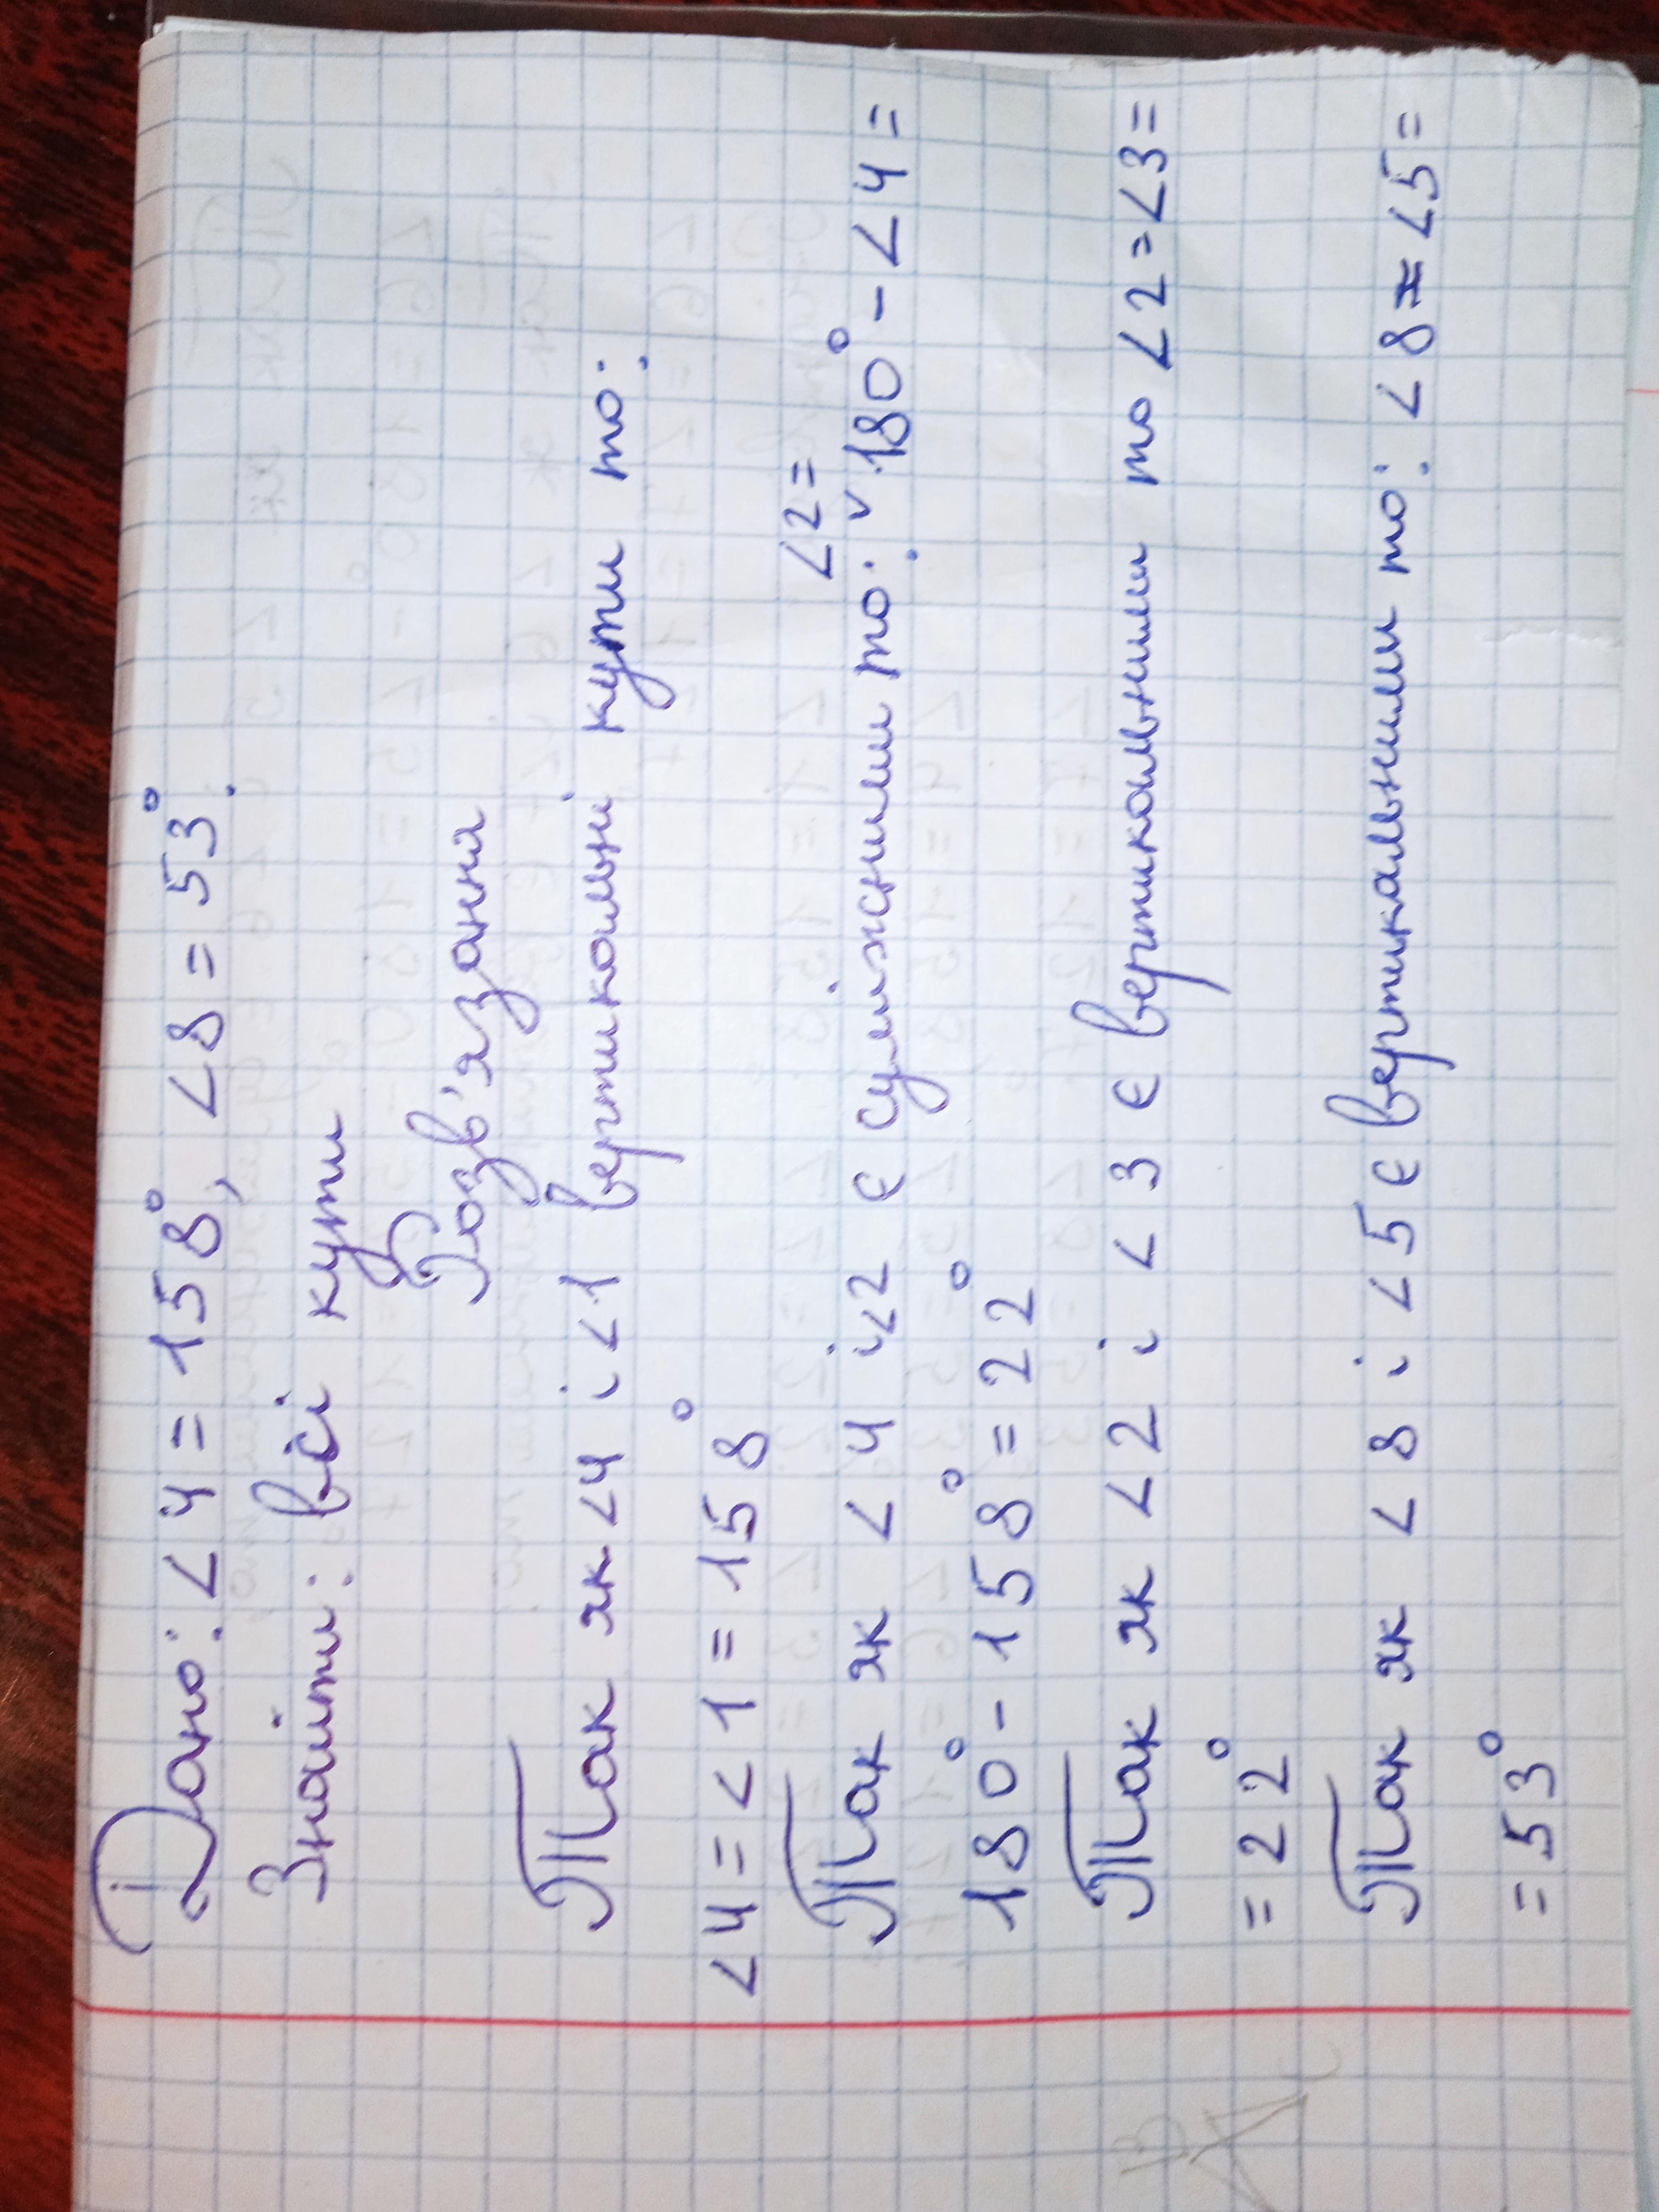 Дано: ∠4 = 158°, ∠8 = 53°.
Знайти: всі кути
Розв'язання
Так як ∠4 і ∠1 вертикальні кути то:
∠4 = ∠1 = 158°
∠2 =
Так як ∠4 і ∠2 є суміжними то: ∨ 180° - ∠4 =
180° - 158° = 22°
Так як ∠2 і ∠3 є вертикальними то ∠2 = ∠3 =
= 22°
Так як ∠8 і ∠5 є вертикальними то: ∠8 = ∠5 =
= 53°